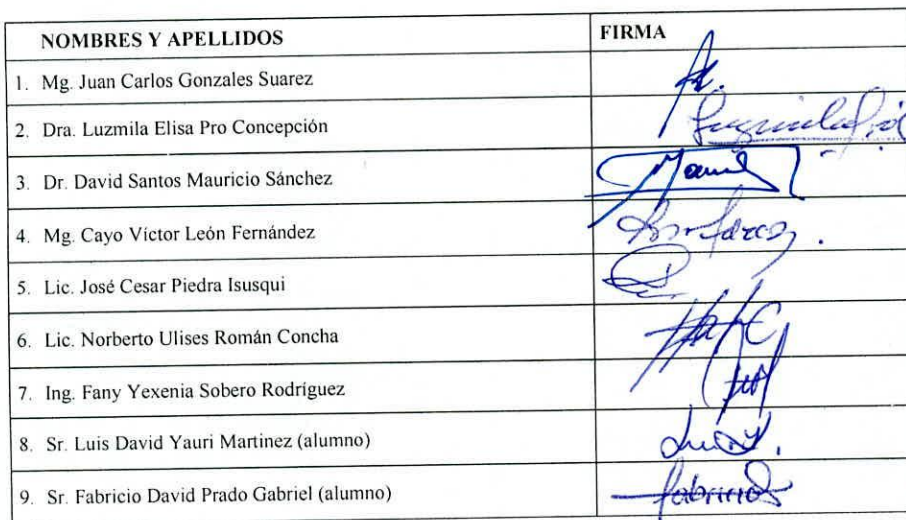 NOMBRES Y APELLIDOS FIRMA
1. Mg. Juan Carlos Gonzales Suarez
2. Dra. Luzmila Elisa Pro Concepción
3. Dr. David Santos Mauricio Sánchez
4. Mg. Cayo Víctor León Fernández
5. Lic. José Cesar Piedra Isusqui
6. Lic. Norberto Ulises Román Concha
7. Ing. Fany Yexenia Sobero Rodríguez
8. Sr. Luis David Yauri Martinez (alumno)
9. Sr. Fabricio David Prado Gabriel (alumno)